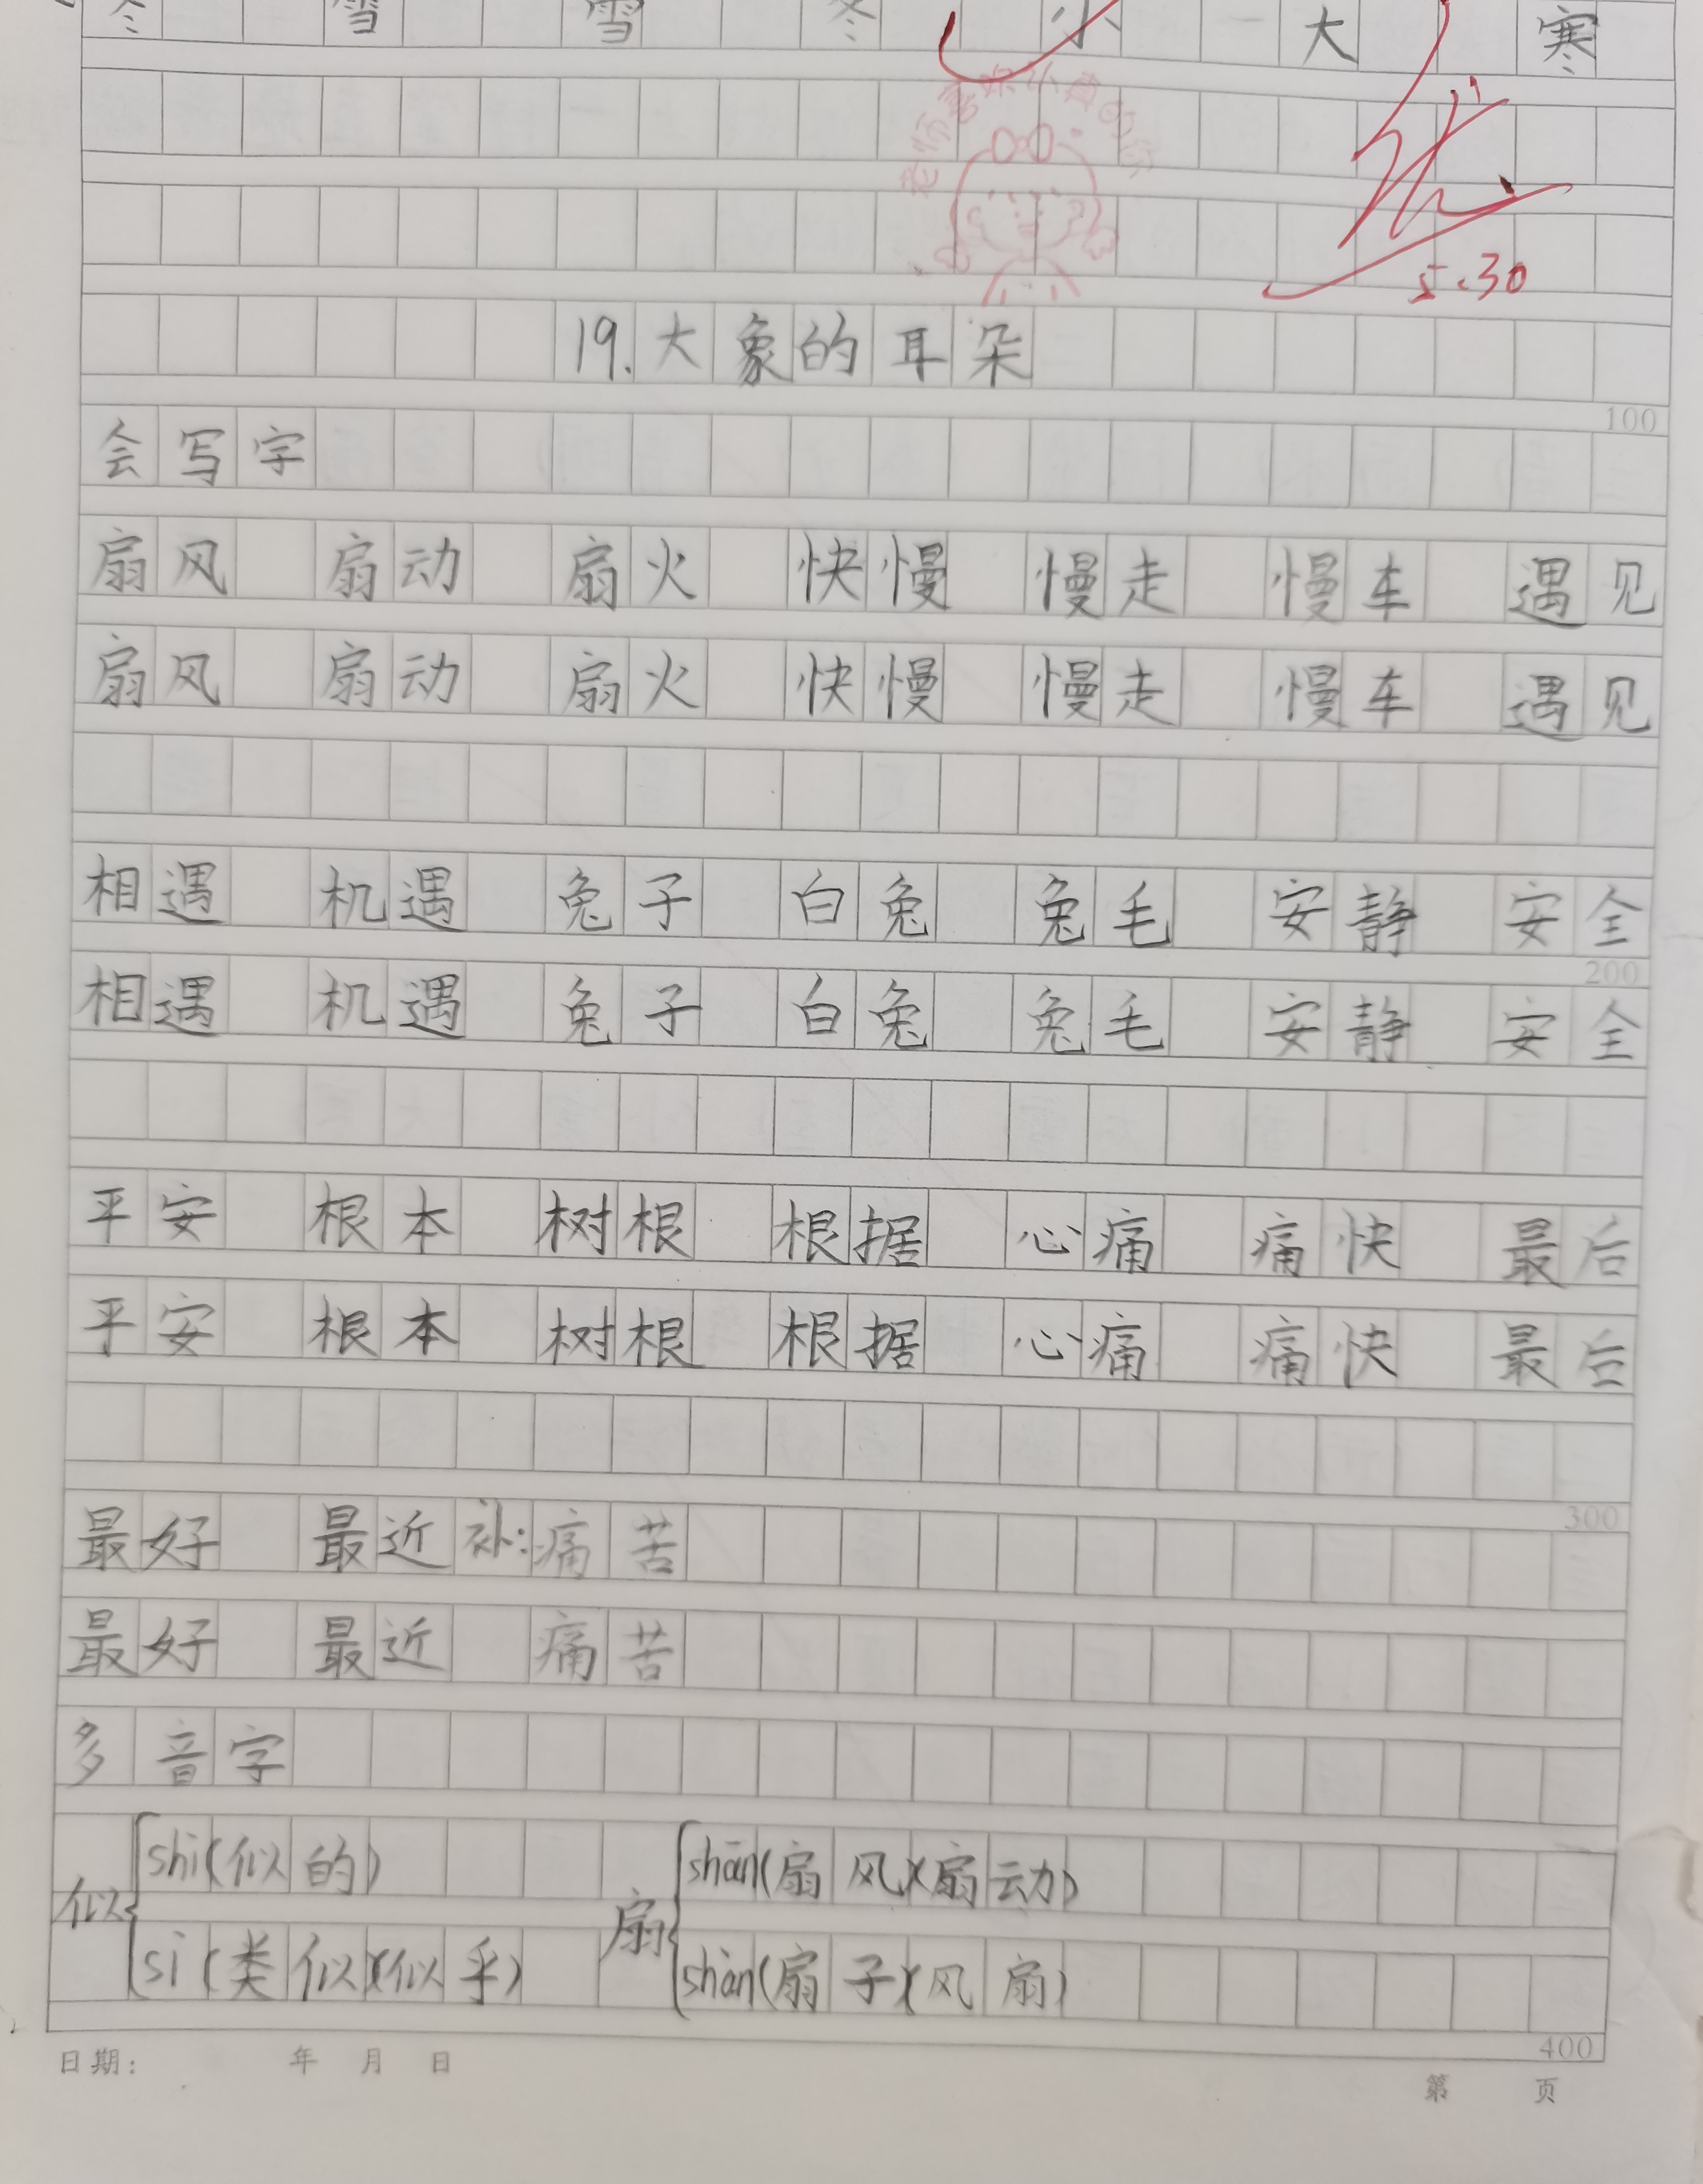 冬 雪 雪 冬 小 大 寒
优
5.30
19.大象的耳朵
100
会写字
扇风 扇动 扇火 快慢 慢走 慢车 遇见
扇风 扇动 扇火 快慢 慢走 慢车 遇见
相遇 机遇 兔子 白兔 兔毛 安静 安全
200
相遇 机遇 兔子 白兔 兔毛 安静 安全
平安 根本 树根 根据 心痛 痛快 最后
平安 根本 树根 根据 心痛 痛快 最后
300
最好 最近 补:痛苦
最好 最近 痛苦
多音字
似 shì(似的) 扇 shān(扇风)(扇动)
sì(类似)(似乎) shàn(扇子)(风扇)
400
日期: 年 月 日 第 页